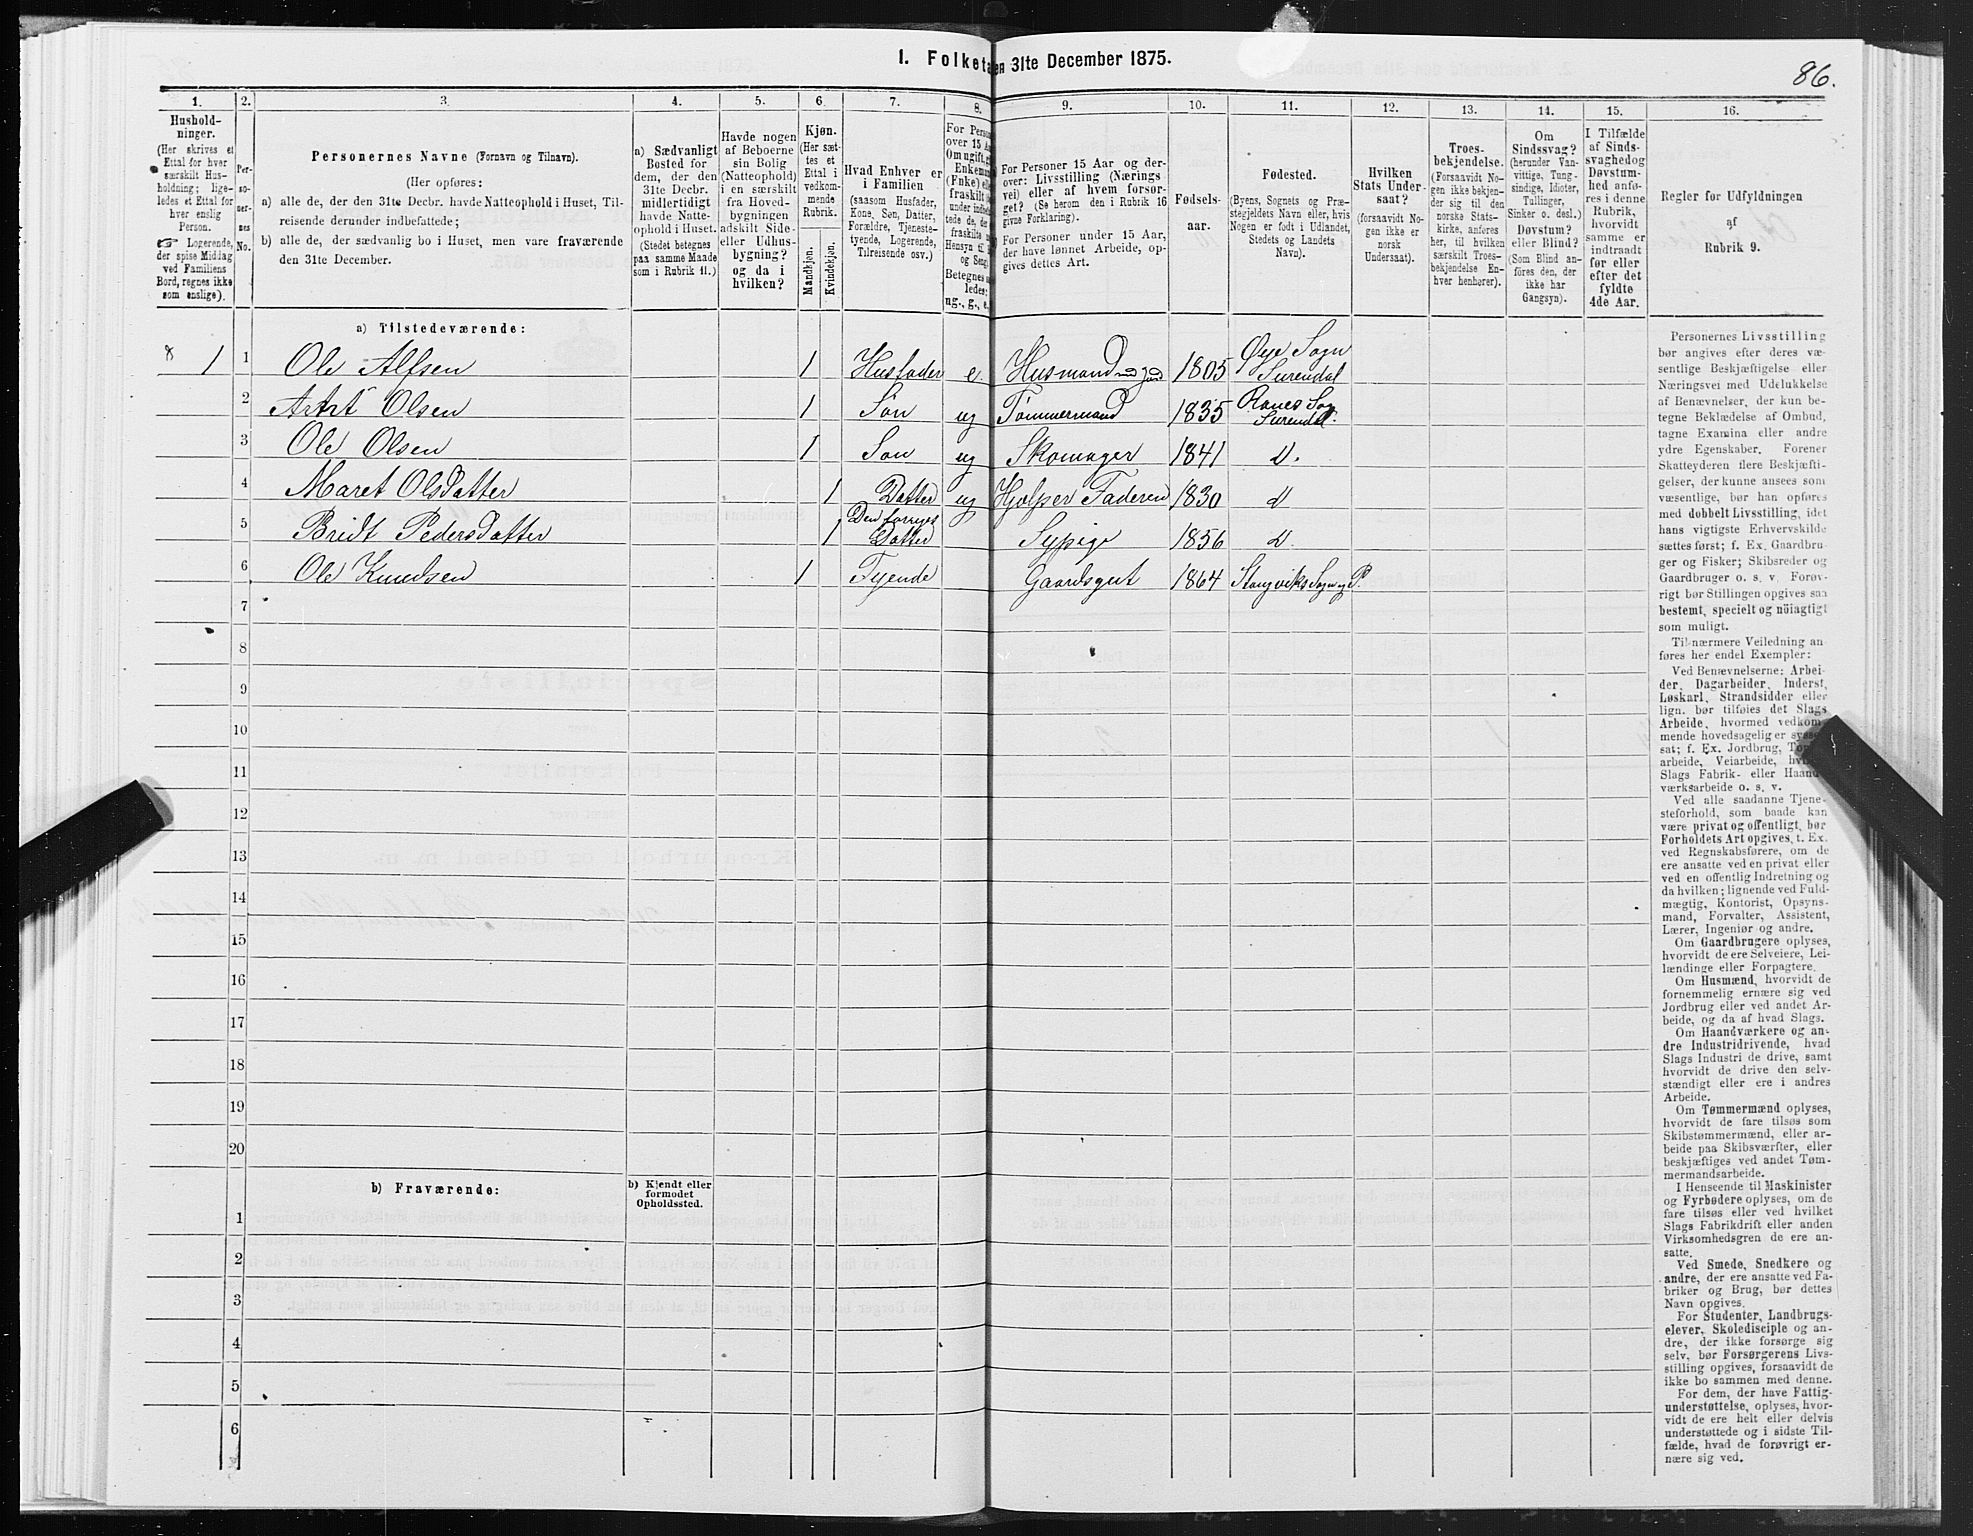 I. Folketæ
en 31te December 1875.
86.
1. 2. 3. 4. 5. 6. 7. 8. 9. 10. 11. 12. 13. 14. 15. 16.
Hushold-
ninger.
(Her skrives et
Ettal for hver
særskilt Hus-
holdning; lige-
ledes et Ettal for
hver enslig
Person.
☞ Logerende,
der spise Middag
ved Familiens
Bord, regnes ikke
som enslige).
Per-
so-
ner-
nes
No.
Personernes Navne (Fornavn og Tilnavn).
(Her opføres:
a) alle de, der den 31te Decbr. havde Natteophold i Huset, Til-
reisende derunder indbefattede;
b) alle de, der sædvanlig bo i Huset, men vare fraværende
den 31te December.
a) Sædvanligt
Bosted for
dem, der den
31te Decbr.
midlertidigt
havde Natte-
ophold i Huset.
(Stedet betegnes
paa samme Maade
som i Rubrik 11.)
Havde nogen
af Beboerne
sin Bolig
(Natteophold)
i en særskilt
fra Hoved-
bygningen
adskilt Side-
eller Udhus-
bygning?
og da i
hvilken?
Kjøn.
(Her sæt-
tes et
Ettal i
vedkom-
mende
Rubrik.
Mandkjøn.
Kvindekjøn.
Hvad Enhver er
i Familien
(saasom Husfader,
Kone, Søn, Datter,
Forældre, Tjeneste-
tyende, Logerende,
Tilreisende osv.)
For Perso
over 15 Aa
Om ugift, g
Enkem
(Enke) el
fraskilt
og Seng
Betegnes
ledes:
ug., g., e.
For Personer 15 Aar og der-
over: Livsstilling (Nærings
vei) eller af hvem forsør-
get? (Se herom den i Rubrik 16
givne Forklaring).
For Personer under 15 Aar,
der have lønnet Arbeide, op-
gives dettes Art.
Fødsels-
aar.
Fødested.
(Byens, Sognets og Præ-
stegjeldets Navn eller, hvis
Nogen er født i Udlandet,
Stedets og Landets
Navn).
Hvilken
Stats Under-
saat?
(forsaavidt No-
gen ikke er
norsk
Undersaat).
Troes-
bekjendelse.
(Forsaavidt No-
gen ikke bekjen-
der sig til den
norske Stats-
kirke, anføres
her, til hvilken
særskilt Troes-
bekjendelse En-
hver henhører).
Om
Sindssvag?
(herunder Van-
vittige, Tung-
sindige, Idioter,
Tullinger,
Sinker o. desl.)
Døvstum?
eller Blind?
(Som Blind an-
føres den, der
ikke har
Gangsyn).
I Tilfælde
af Sinds-
svaghed og
Døvstum-
hed anfø-
res i denne
Rubrik,
hvorvidt
samme er
indtraadt
før eller
efter det
fyldte
4de Aar.
Regler for Udfyldningen
af
Rubrik 9.
a) Tilstedeværende:
8 1 1 Ole Alfsen 1 Husfader e. Husmand med Jord 1805 Øye Sogn Surendal
2 Olsen 1 Søn ug Tømmermand 1835 Ranes Sogn Surendal.
3 Ole Olsen 1 Søn ug Skomager 1841 d.
4 Maret Olsdatter 1 Datter ug Hjelper Faderen 1830 d
5 Bridt Pedersdatter 1 Den forriges Datter Sypige 1856 d.
6 Ole Knudsen 1 Tyende Gaardsgut 1864 Stangviks Sogn og P.
7
8
9
10
11
12
13
14
15
16
17
18
19
20
b) Fraværende:
b) Kjendt eller
formodet
Opholdssted.
1
2
3
4
5
6
Personernes Livsstilling
bør angives efter deres væ-
sentlige Beskjæftigelse eller
Næringsvei med Udelukkelse
af Benævnelser, der kun be-
tegne Beklædelse af Ombud,
tagne Examina eller andre
ydre Egenskaber. Forener
Skatteyderen flere Beskjæfti-
gelser, der kunne ansees som
væsentlige, bør han opføres
med dobbelt Livsstilling, idet
hans vigtigste Erhvervskilde
sættes først; f. Ex. Gaardbru-
ger og Fisker; Skibsreder og
Gaardbruger o. s. v. Forøv-
rigt bør Stillingen opgives saa
bestemt, specielt og nöiagtigt
som muligt.
Til nærmere Veiledning an-
føres her endel Exempler:
Ved Benævnelserne: Arbei-
der, Dagarbeider, Inderst,
Løskarl, Strandsidder eller
lign. bør tilføies det Slags
Arbeide, hvormed vedkom-
mende hovedsagelig er syssel-
sat; f. Ex. Jordbrug,
arbeide, Veiarbeide,
Slags Fabrik- eller Haand-
værksarbeide o. s. v.
Ved alle saadanne Tjene-
steforhold, som baade kan
være privat og offentligt, bør
Forholdets Art opgives, t. Ex.
ved Regnskabsførere, om de
ere ansatte ved en privat eller
ved en offentlig Indretning og
da hvilken; lignende ved Fuld-
mægtig, Kontorist, Opsyns-
mand, Forvalter, Assistent,
Lærer, Ingeniør og andre.
Om Gaardbrugere oplyses,
hvorvidt de ere Selveiere, Lei-
lændinge eller Forpagtere.
Om Husmænd, hvorvidt de
fornemmelig ernære sig ved
Jordbrug eller ved andet Ar-
beide, og da af hvad Slags.
Om Haandværkere og an-
dre Industridrivende, hvad
Slags Industri de drive, samt
hvorvidt de drive den selv-
stændigt eller ere i andres
Arbeide.
Om Tømmermænd oplyses,
hvorvidt de fare tilsøs som
Skibstømmermænd, eller ar-
beide paa Skibsværfter, eller
beskjæftiges ved andet Tøm-
mermandsarbeide.
I Henseende til Maskinister
og Fyrbødere oplyses, om de
fare tilsøs eller ved hvilket
Slags Fabrikdrift eller anden
Virksomhedsgren de ere an-
satte.
Ved Smede, Snedkere og
andre, der ere ansatte ved Fa-
briker og Brug, bør dettes
Navn opgives.
For Studenter, Landbrugs-
elever, Skoledisciple og an-
dre, der ikke forsørge sig
selv, bør Forsørgerens Livs-
stilling opgives, forsaavidt de
ikke bo sammen med denne.
For dem, der have Fattig-
understøttelse, oplyses, hvor-
vidt de ere helt eller delvis
understøttede og i sidste Til-
fælde, hvad de forøvrigt er-
nære sig ved.